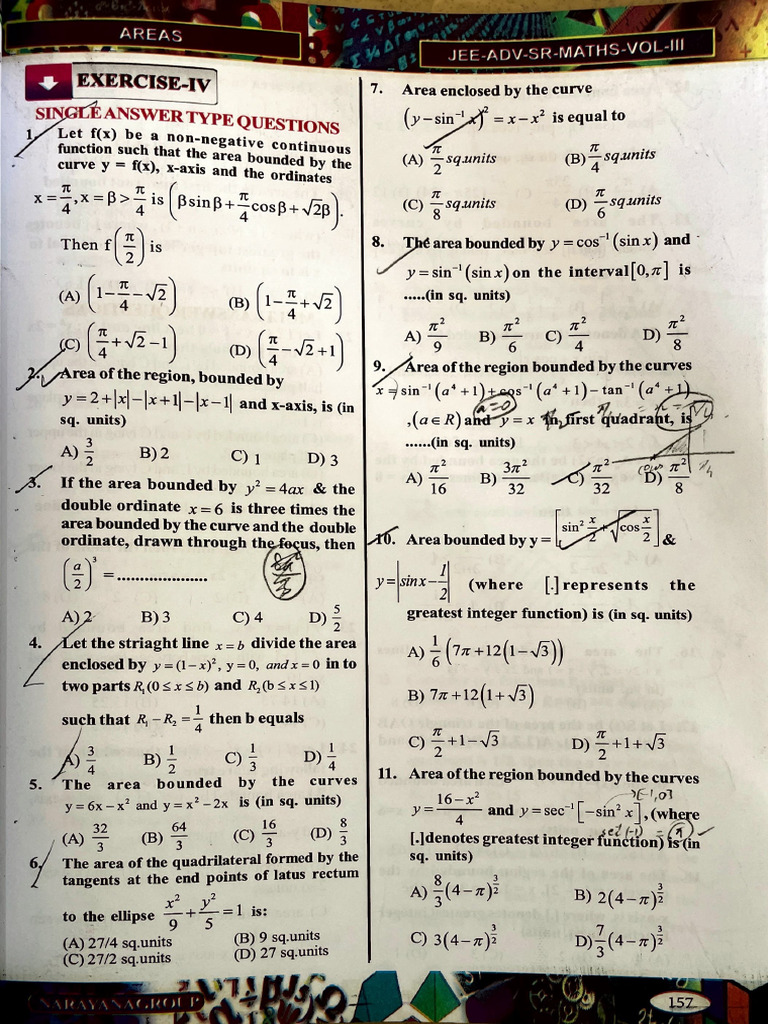 AREAS
JEE-ADV-SR-MATHS-VOL-III
EXERCISE-IV
SINGLE ANSWER TYPE QUESTIONS
1. Let f(x) be a non-negative continuous
function such that the area bounded by the
curve y = f(x), x-axis and the ordinates
x = π/4, x = β > π/4 is (β sin β + π/4 cos β + √2β).
Then f(π/2) is
(A) (1 − π/4 − √2) (B) (1 − π/4 + √2)
(C) (π/4 + √2 − 1) (D) (π/4 − √2 + 1)
2. Area of the region, bounded by
y = 2+|x|−|x+1|−|x−1| and x-axis, is (in
sq. units)
A) 3/2 B) 2 C) 1 D) 3
3. If the area bounded by y² = 4ax & the
double ordinate x = 6 is three times the
area bounded by the curve and the double
ordinate, drawn through the focus, then
(a/2)³ = ....................
8a²/3
A) 2 B) 3 C) 4 D) 5/2
4. Let the striaght line x = b divide the area
enclosed by y = (1−x)², y = 0, and x = 0 in to
two parts R₁(0 ≤ x ≤ b) and R₂(b ≤ x ≤ 1)
such that R₁ − R₂ = 1/4 then b equals
A) 3/4 B) 1/2 C) 1/3 D) 1/4
5. The area bounded by the curves
y = 6x − x² and y = x² − 2x is (in sq. units)
(A) 32/3 (B) 64/3 (C) 16/3 (D) 8/3
6. The area of the quadrilateral formed by the
tangents at the end points of latus rectum
to the ellipse x²/9 + y²/5 = 1 is:
(A) 27/4 sq.units (B) 9 sq.units
(C) 27/2 sq.units (D) 27 sq.units
7. Area enclosed by the curve
(y − sin⁻¹ x)² = x − x² is equal to
(A) π/2 sq.units (B) π/4 sq.units
(C) π/8 sq.units (D) π/6 sq.units
8. The area bounded by y = cos⁻¹(sin x) and
y = sin⁻¹(sin x) on the interval [0, π] is
.....(in sq. units)
A) π²/9 B) π²/6 C) π²/4 D) π²/8
9. Area of the region bounded by the curves
x = sin⁻¹(a⁴+1) + cos⁻¹(a⁴+1) − tan⁻¹(a⁴+1)
a=0
,(a ∈ R) and y = x in first quadrant, is
......(in sq. units)
A) π²/16 B) 3π²/32 C) π²/32 D) π²/8
10. Area bounded by y = [sin² x/2 + √(cos x/2)] &
y = |sin x − 1/2| (where [.] represents the
greatest integer function) is (in sq. units)
A) 1/6 (7π + 12(1 − √3))
B) 7π + 12(1 + √3)
C) π/2 + 1 − √3 D) π/2 + 1 + √3
11. Area of the region bounded by the curves
[-1,0]
y = (16 − x²)/4 and y = sec⁻¹[−sin² x], (where
sec(-1) = π
[.] denotes greatest integer function) is (in
sq. units)
A) 8/3 (4 − π)^(3/2) B) 2(4 − π)^(3/2)
C) 3(4 − π)^(3/2) D) 7/3 (4 − π)^(3/2)
NARAYANAGROUP
157